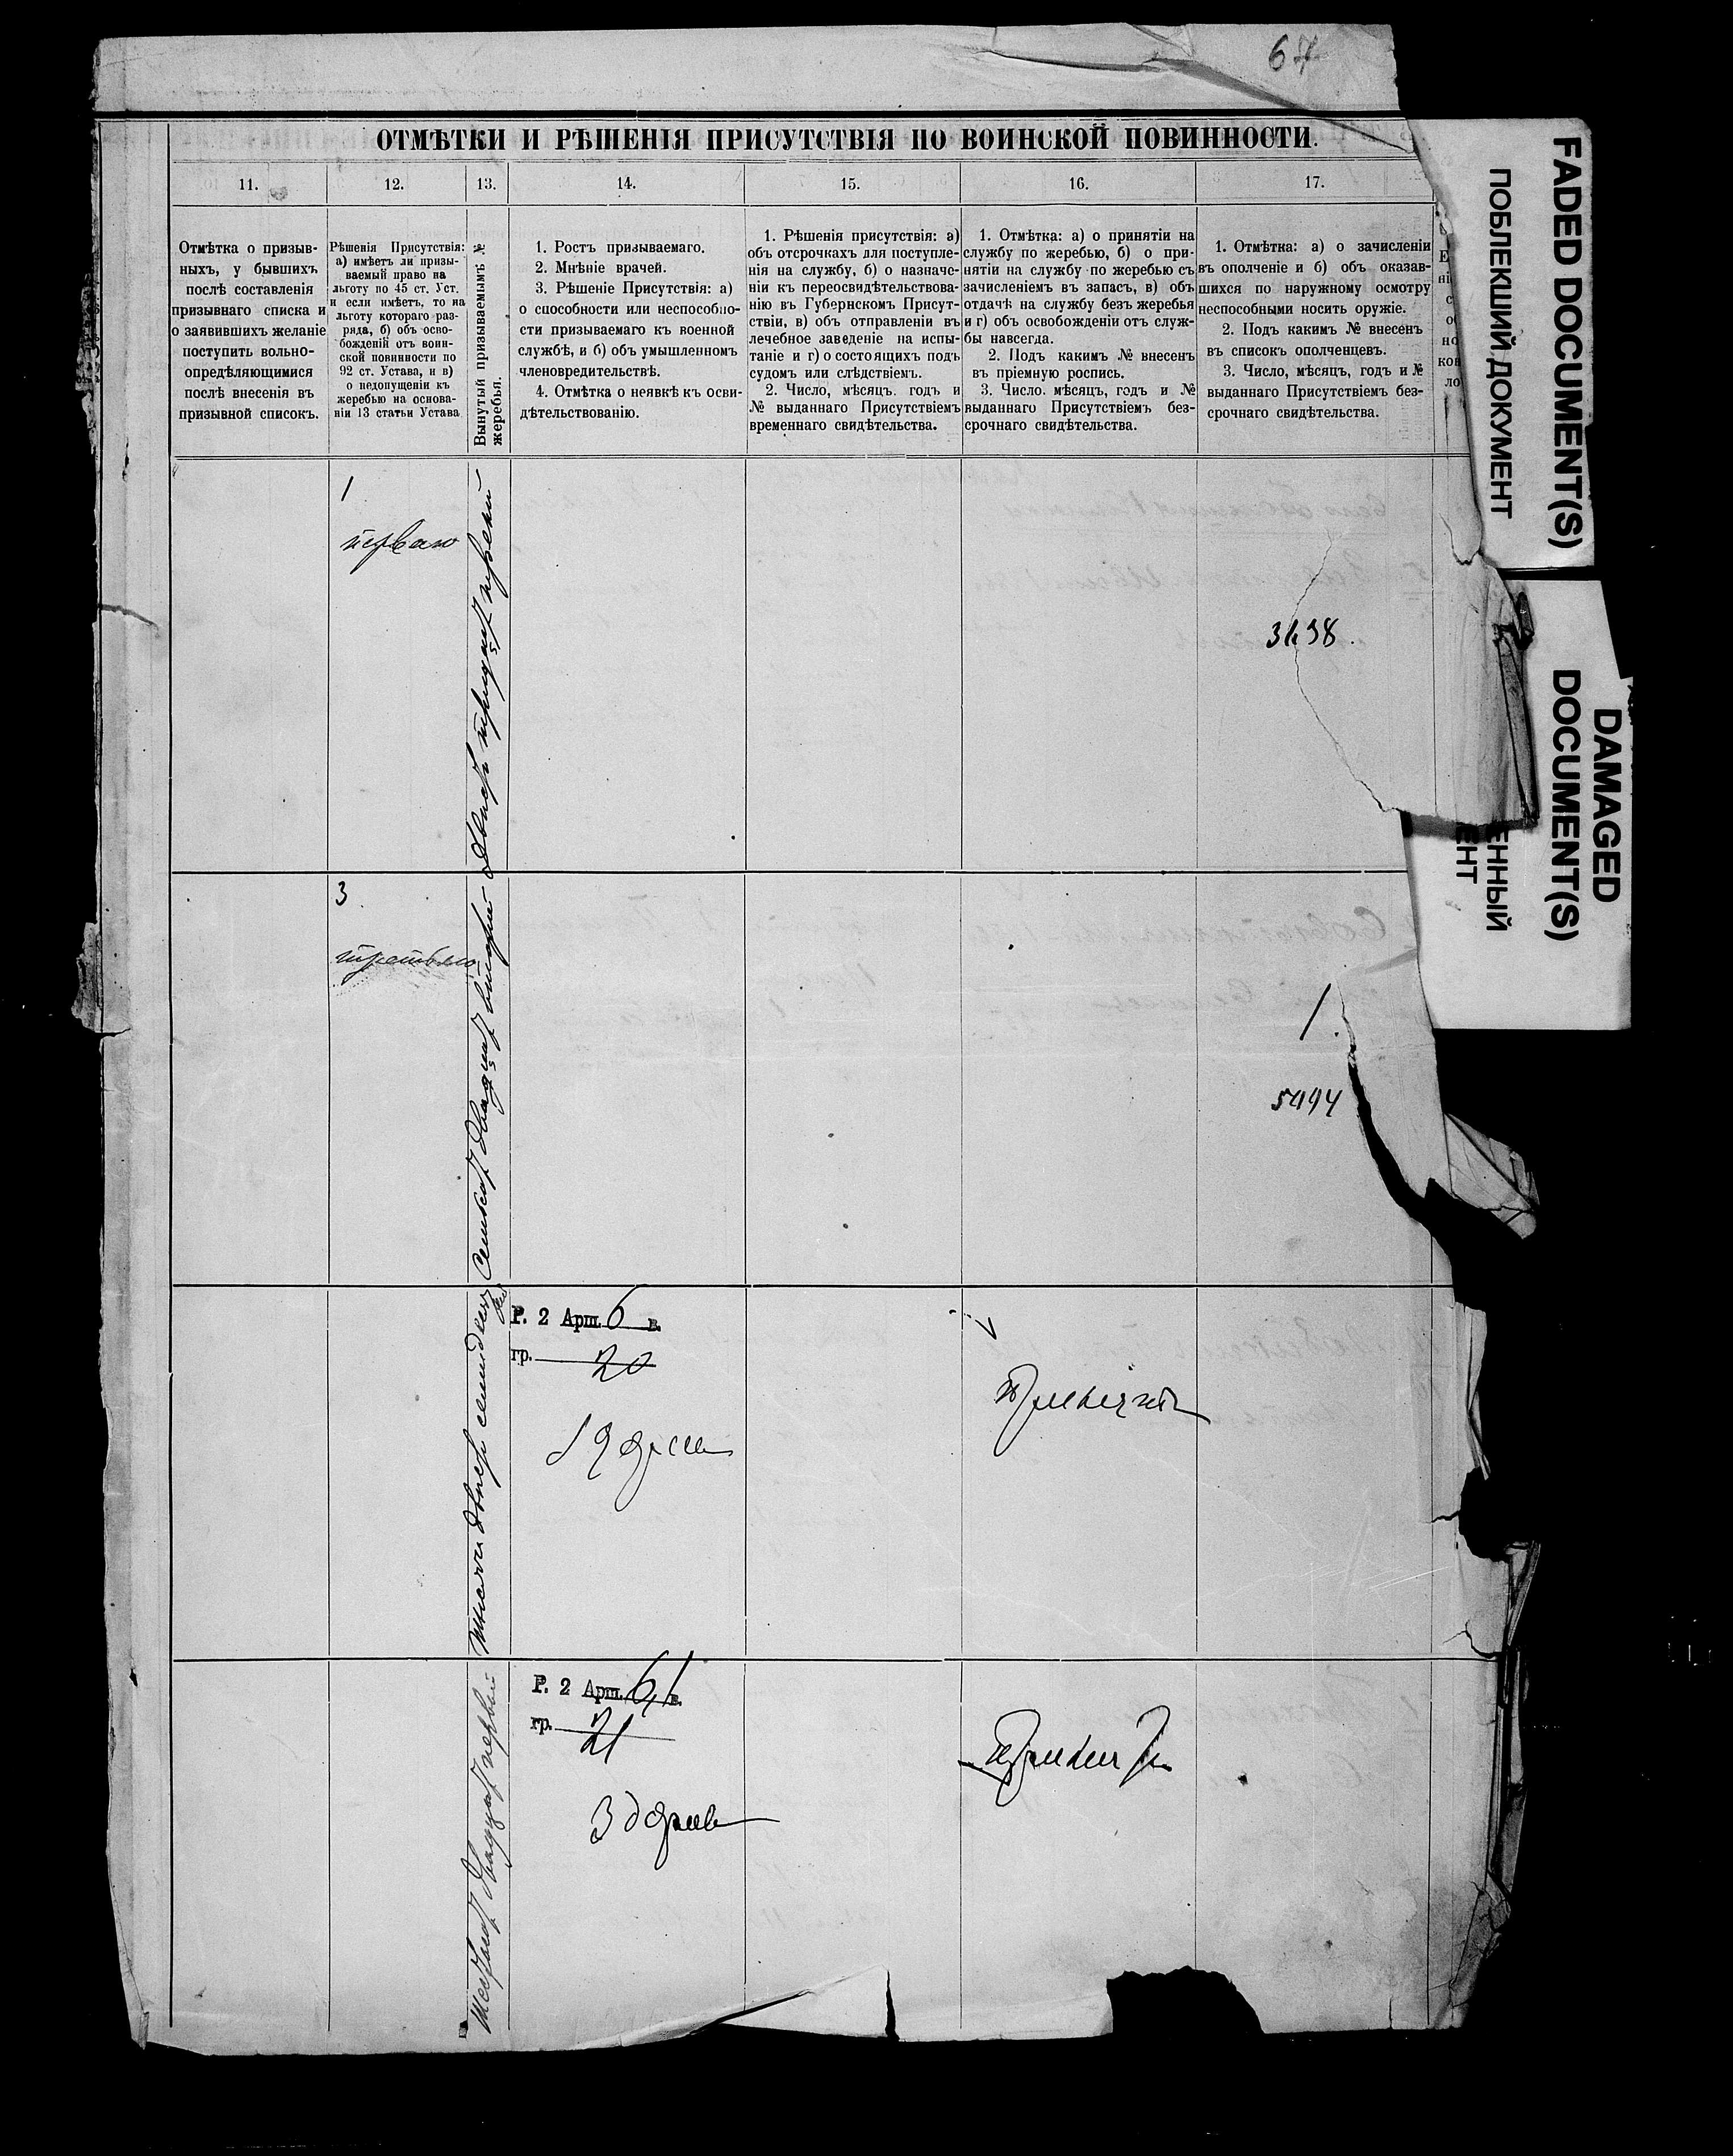 67
ОТМѢТКИ И РѢШЕНІЯ ПРИСУТСТВІЯ ПО ВОИНСКОЙ ПОВИННОСТИ.
11.
12.
13.
14.
15.
16.
17.
Отмѣтка о призыв-
ныхъ, у бывшихъ
послѣ составленія
призывнаго списка и
о заявившихъ желаніе
поступить вольно-
опредѣляющимися
послѣ внесенія въ
призывной списокъ.
Рѣшенія Присутствія:
а) имѣетъ ли призы-
ваемый право на
льготу по 45 ст. Уст.
и если имѣетъ, то на
льготу котораго раз-
ряда, б) объ осво-
божденій отъ воин-
ской повинности по
92 ст. Устава, и в)
о недопущеніи къ
жеребью на основа-
ніи 13 статьи Устава
Вынутый призываемымъ №
жеребья.
1. Ростъ призываемаго.
2. Мнѣніе врачей.
3. Рѣшеніе Присутствія: а)
о способности или неспособно-
сти призываемаго къ военной
службѣ, и б) объ умышленномъ
членовредительствѣ.
4. Отмѣтка о неявкѣ къ осви-
дѣтельствованію.
1. Рѣшенія присутствія: а)
объ отсрочкахъ для поступле-
нія на службу, б) о назначе-
ніи къ переосвидѣтельствова-
нію въ Губернскомъ Присут-
ствіи, в) объ отправленіи въ
лечебное заведеніе на испы-
таніе и г) о состоящихъ подъ
судомъ или слѣдствіемъ.
2. Число, мѣсяцъ, годъ и
№ выданнаго Присутствіемъ
временнаго свидѣтельства.
1. Отмѣтка: а) о принятіи на
службу по жеребью, б) о при-
нятіи на службу по жеребью съ
зачисленіемъ въ запасъ, в) объ
отдачѣ на службу безъ жеребья
и г) объ освобожденіи отъ служ-
бы навсегда.
2. Подъ какимъ № внесенъ
въ пріемную роспись.
3. Число. мѣсяцъ, годъ и №
выданнаго Присутствіемъ без-
срочнаго свидѣтельства.
1. Отмѣтка: а) о зачисленіи
въ ополченіе и б) объ оказав-
шихся по наружному осмотру
неспособными носить оружіе.
2. Подъ какимъ № внесенъ
въ списокъ ополченцевъ.
3. Число, мѣсяцъ, годъ и №
выданнаго Присутствіемъ без-
срочнаго свидѣтельства.
FADED DOCUMENT(S)
ПОБЛЕКШИЙ ДОКУМЕНТ
DAMAGED
DOCUMENT(S)
ЕННЫЙ
ЕНТ
1
перваго
двѣст тридцат первый
3
третьяго
Семьсот двадцат второй
1.
Р. 2 Арш. 6 в.
гр. 20
Тысяча двѣст семидесят
Р. 2 Арш. 6 1 в.
гр. 21
Шестьсот двадцат первый